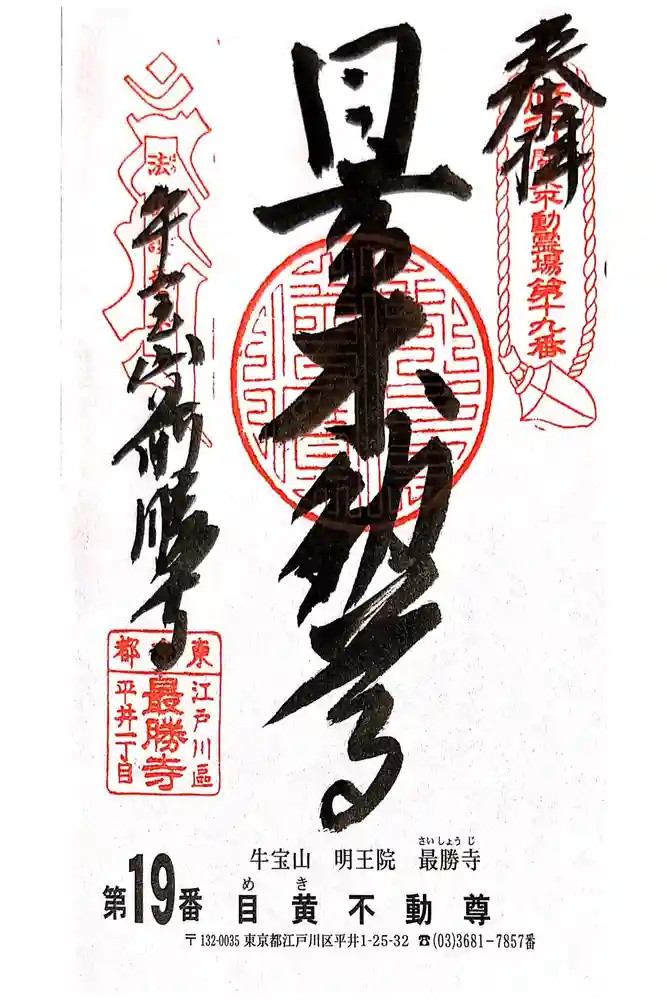 奉拝
関東不動霊場第十九番
目黄不動尊
牛宝山最勝寺
法
東京都
江戸川區
最勝寺
平井一丁目
さいしょうじ
牛宝山 明王院 最勝寺
めき
第19番 目黄不動尊
〒132-0035 東京都江戸川区平井1-25-32 ☎(03)3681-7857番